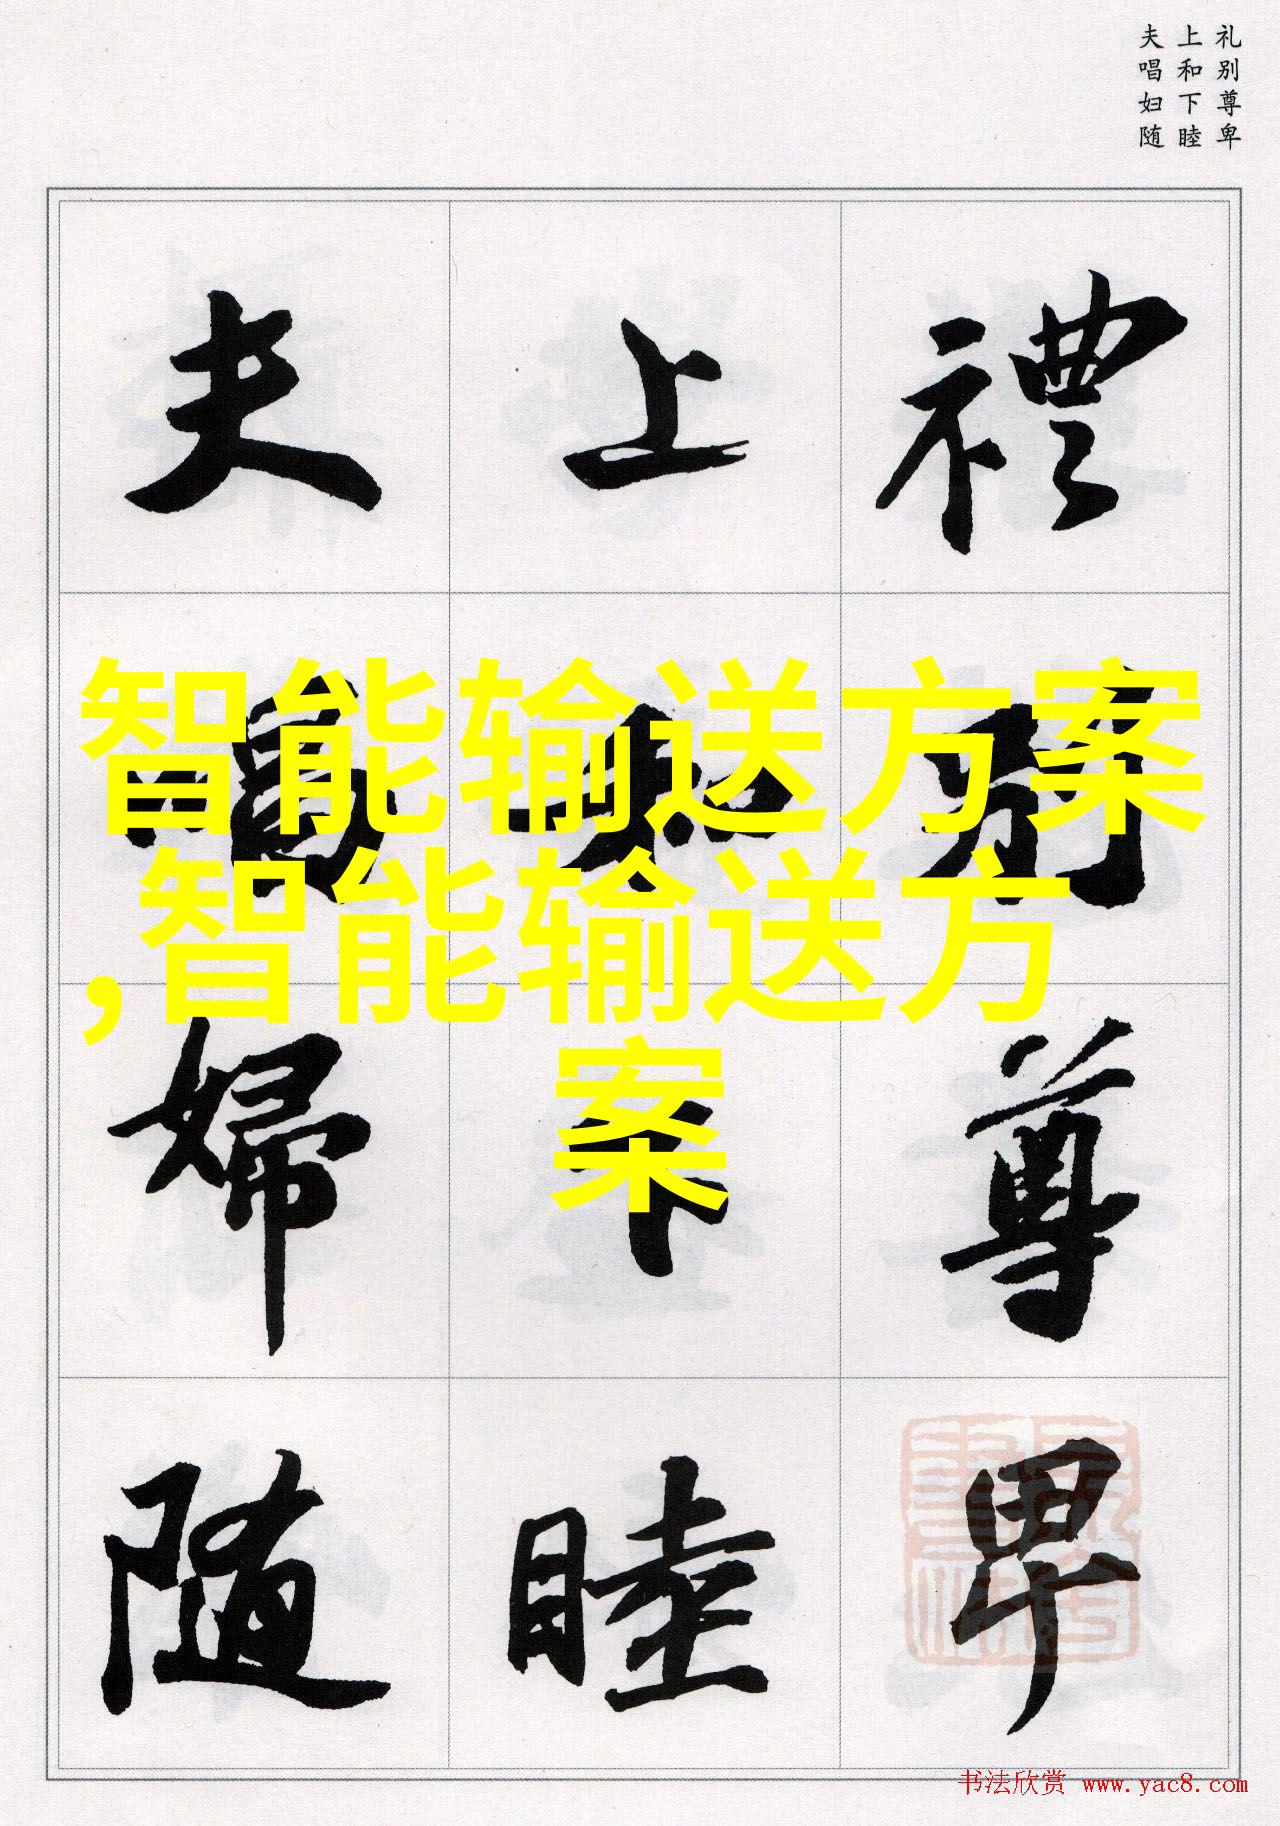 礼别尊卑
上和下睦
夫唱妇随
禮別尊卑
上和下睦
夫唱婦随
智能输送方案
,智能输送方
案
书法欣赏 www.yac8.com